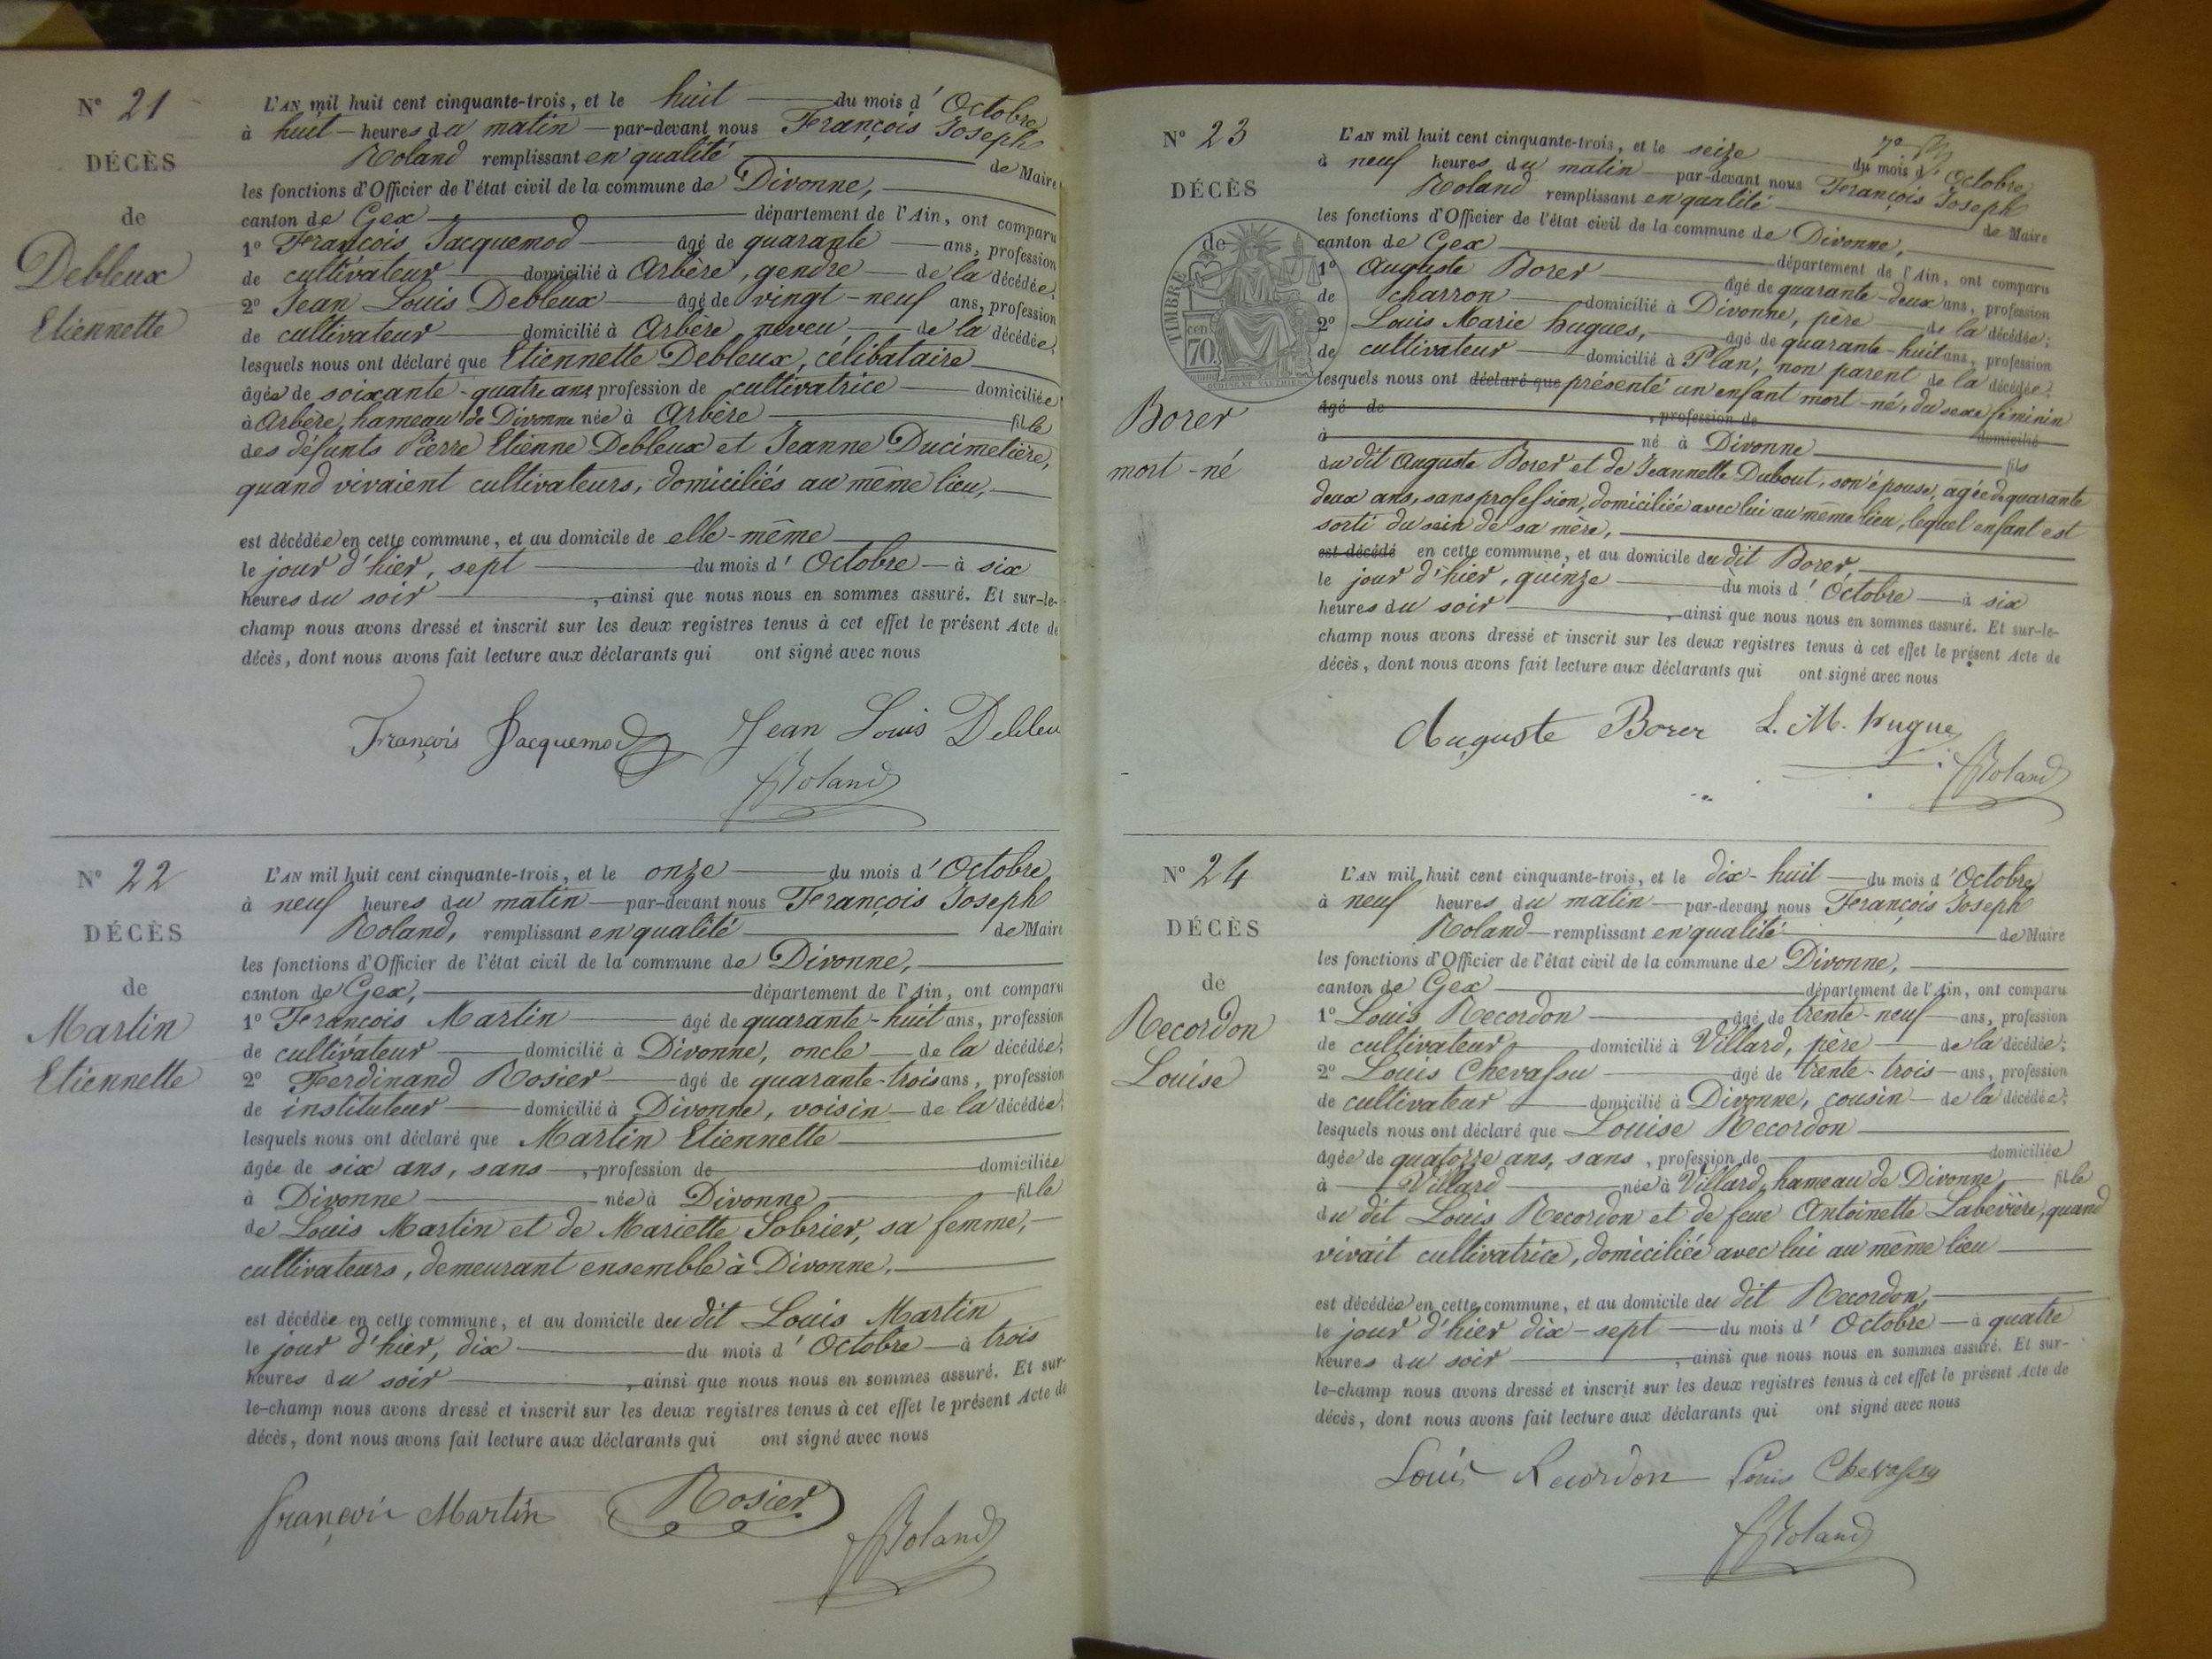 N° 21
DÉCÈS
de
Debleux
Etiennette
L'AN mil huit cent cinquante-trois, et le huit du mois d'Octobre
à huit heures du matin par-devant nous François Joseph
Roland remplissant en qualité de Maire
les fonctions d'Officier de l'état civil de la commune de Divonne,
canton de Gex département de l'Ain, ont comparu
1° François Jacquemod âgé de quarante ans, profession
de cultivateur domicilié à Arbère, gendre de la décédée;
2° Jean Louis Debleux âgé de vingt-neuf ans, profession
de cultivateur domicilié à Arbère, neveu de la décédée,
lesquels nous ont déclaré que Etiennette Debleux, célibataire
âgée de soixante-quatre ans, profession de cultivatrice domiciliée
à Arbère, hameau de Divonne née à Arbère fille
des défunts Pierre Etienne Debleux et Jeanne Ducimetière,
quand vivaient cultivateurs, domiciliés au même lieu,
est décédée en cette commune, et au domicile de elle-même
le jour d'hier, sept du mois d'Octobre à six
heures du soir, ainsi que nous nous en sommes assuré. Et sur-le-
champ nous avons dressé et inscrit sur les deux registres tenus à cet effet le présent Acte de
décès, dont nous avons fait lecture aux déclarants qui ont signé avec nous
François Jacquemod Jean Louis Debleu
Roland
N° 22
DÉCÈS
de
Martin
Etiennette
L'AN mil huit cent cinquante-trois, et le onze du mois d'Octobre
à neuf heures du matin par-devant nous François Joseph
Roland, remplissant en qualité de Maire
les fonctions d'Officier de l'état civil de la commune de Divonne,
canton de Gex, département de l'Ain, ont comparu
1° François Martin âgé de quarante-huit ans, profession
de cultivateur domicilié à Divonne, oncle de la décédée;
2° Ferdinand Rosier âgé de quarante-trois ans, profession
de instituteur domicilié à Divonne, voisin de la décédée;
lesquels nous ont déclaré que Martin Etiennette
âgée de six ans, sans, profession de domiciliée
à Divonne née à Divonne, fille
de Louis Martin et de Mariette Sobrier, sa femme,
cultivateurs, demeurant ensemble à Divonne,
est décédée en cette commune, et au domicile du dit Louis Martin
le jour d'hier, dix du mois d'Octobre à trois
heures du soir, ainsi que nous nous en sommes assuré. Et sur-
le-champ nous avons dressé et inscrit sur les deux registres tenus à cet effet le présent Acte de
décès, dont nous avons fait lecture aux déclarants qui ont signé avec nous
François Martin Rosier
Roland
N° 23
DÉCÈS
de
TIMBRE
70 cen
Borer
mort-né
L'AN mil huit cent cinquante-trois, et le seize du mois d'Octobre,
à neuf heures du matin par-devant nous François Joseph
Roland remplissant en qualité de Maire
les fonctions d'Officier de l'état civil de la commune de Divonne,
canton de Gex département de l'Ain, ont comparu
1° Auguste Borer âgé de quarante-deux ans, profession
de charron domicilié à Divonne, père de la décédée;
2° Louis Marie hugues, âgé de quarante-huit ans, profession
de cultivateur domicilié à Plan, non parent de la décédée:
lesquels nous ont déclaré que présenté un enfant mort-né, du sexe féminin
âgé de, profession de domicilié
à né à Divonne fils
du dit Auguste Borer et de Jeannette Dubout, son épouse, agée de quarante
deux ans, sans profession, domiciliée avec lui au même lieu, lequel enfant est
sorti du sein de sa mère,
est décédé en cette commune, et au domicile du dit Borer,
le jour d'hier, quinze du mois d'Octobre à six
heures du soir, ainsi que nous nous en sommes assuré. Et sur-le-
champ nous avons dressé et inscrit sur les deux registres tenus à cet effet le présent Acte de
décès, dont nous avons fait lecture aux déclarants qui ont signé avec nous
Auguste Borer L. M. hugue
Roland
N° 24
DÉCÈS
de
Recordon
Louise
L'AN mil huit cent cinquante-trois, et le dix-huit du mois d'Octobre
à neuf heures du matin par-devant nous François Joseph
Roland remplissant en qualité de Maire
les fonctions d'Officier de l'état civil de la commune de Divonne,
canton de Gex département de l'Ain, ont comparu
1° Louis Recordon âgé de trente-neuf ans, profession
de cultivateur domicilié à Villard, père de la décédée;
2° Louis Chevassu âgé de trente-trois ans, profession
de cultivateur domicilié à Divonne, cousin de la décédée;
lesquels nous ont déclaré que Louise Recordon
âgée de quatorze ans, sans, profession de domiciliée
à Villard née à Villard, hameau de Divonne fille
du dit Louis Recordon et de feue Antoinette Labevière, quand
vivait cultivatrice, domiciliée avec lui au même lieu
est décédée en cette commune, et au domicile du dit Recordon,
le jour d'hier dix-sept du mois d'Octobre à quatre
heures du soir, ainsi que nous nous en sommes assuré. Et sur-
le-champ nous avons dressé et inscrit sur les deux registres tenus à cet effet le présent Acte de
décès, dont nous avons fait lecture aux déclarants qui ont signé avec nous
Louis Recordon Louis Chevassu
Roland